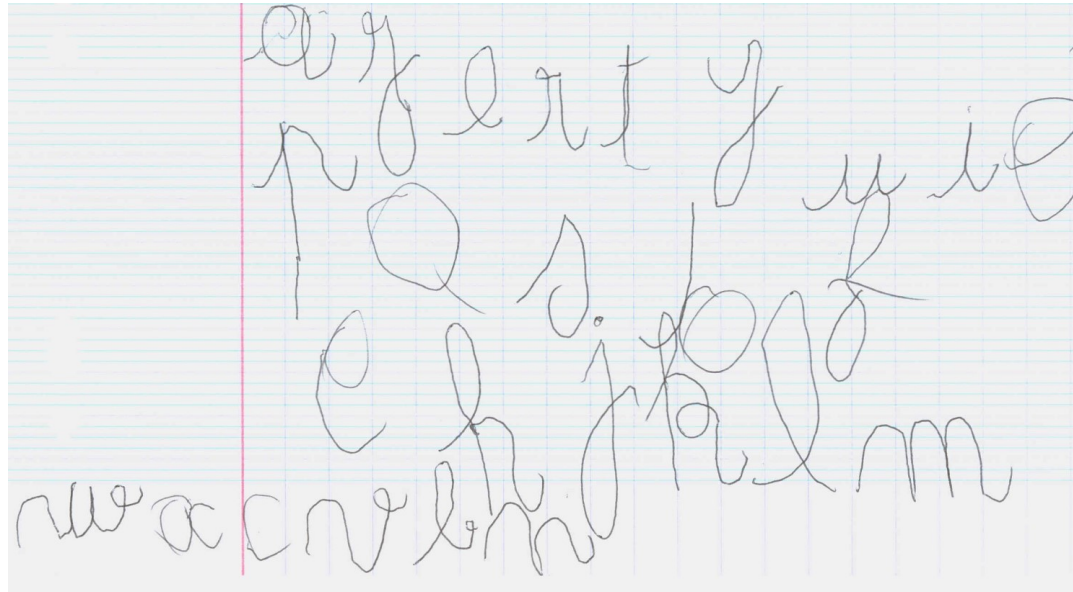 a z e r t y u i o
p q s d f
g h j k l m
w x c v b n